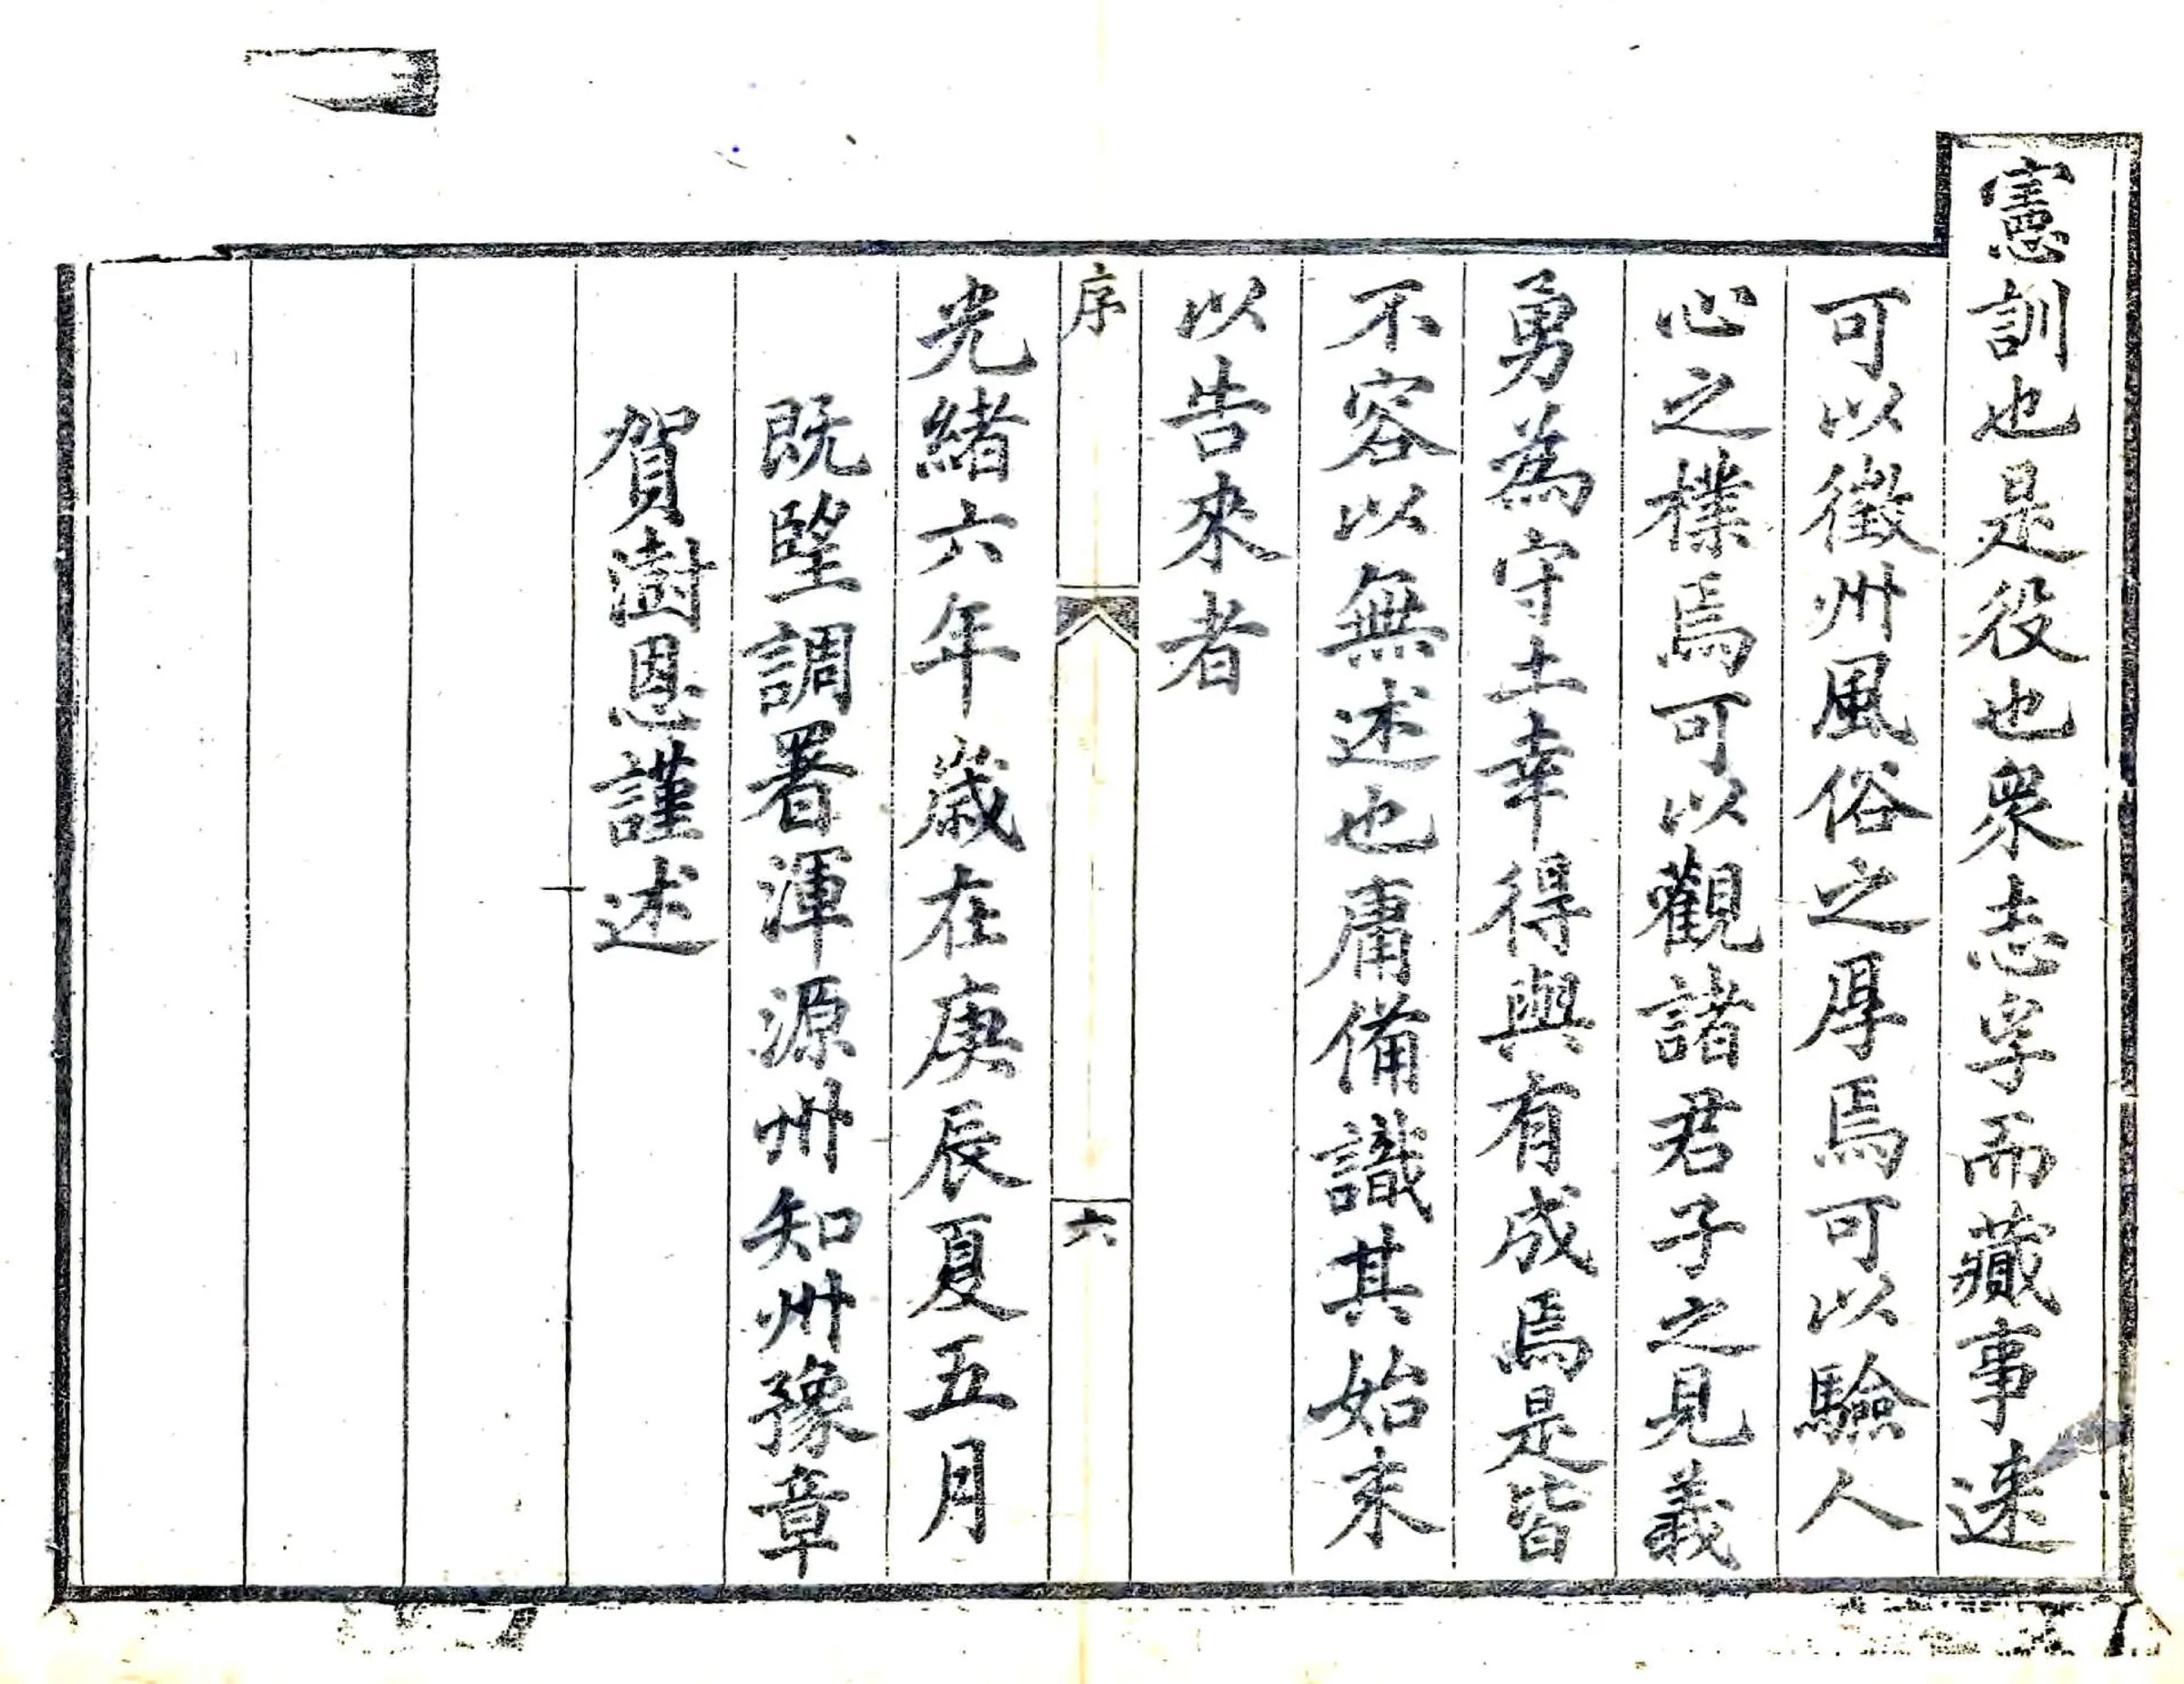 憲訓也是役也衆志孚而蕆事速
可以徵州風俗之厚焉可以驗人
心之樸焉可以觀諸君子之見義
勇為守土幸得與有成焉是皆
不容以無述也庸備識其始末
以告來者
序
六
光緒六年歲在庚辰夏五月
既朢調署渾源州知州豫章
賀澍恩謹述